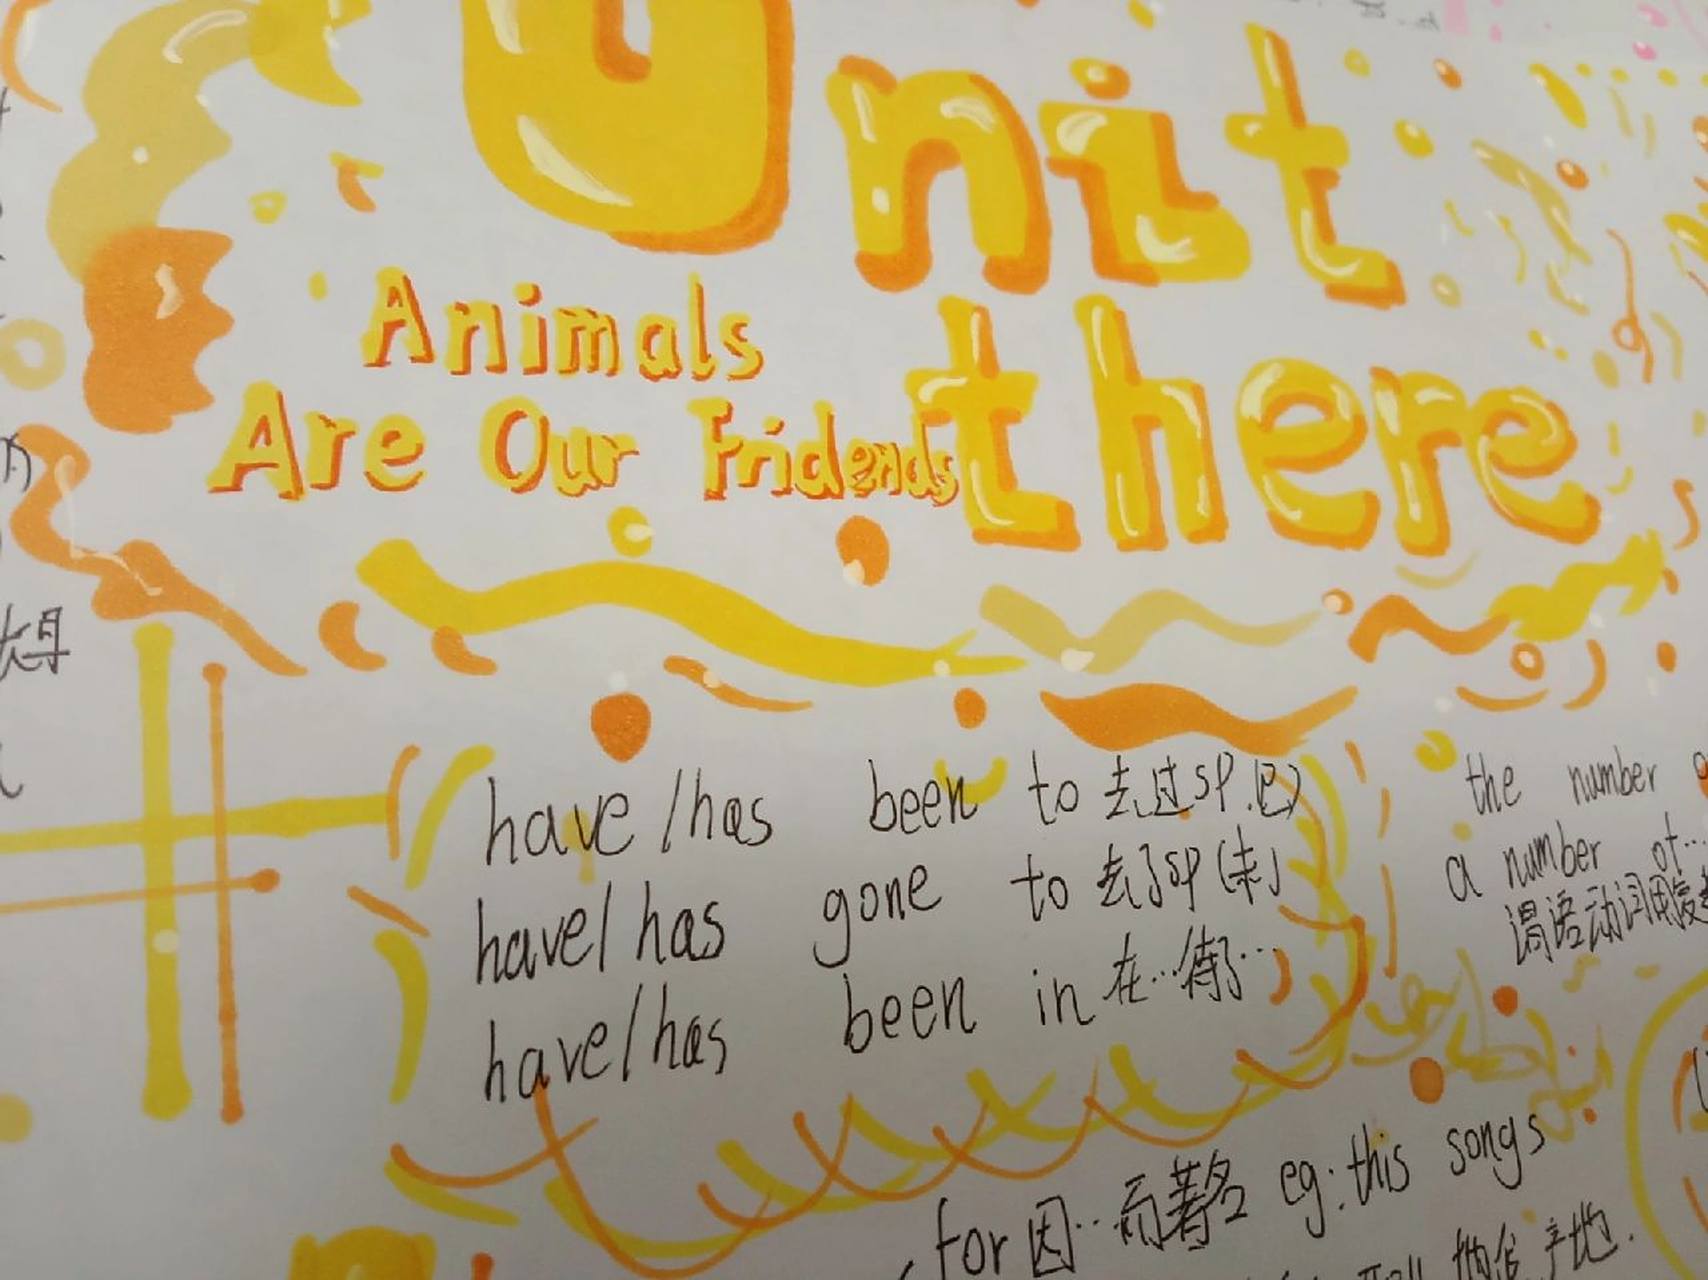 Unit
there
Animals
Are Our Fridends
have/has been to 去过sp.(已)
have/has gone to 去了sp(未)
have/has been in 在…待了…
the number
a number of…
谓语动词用复
for 因…而著名 eg:this songs
产地.